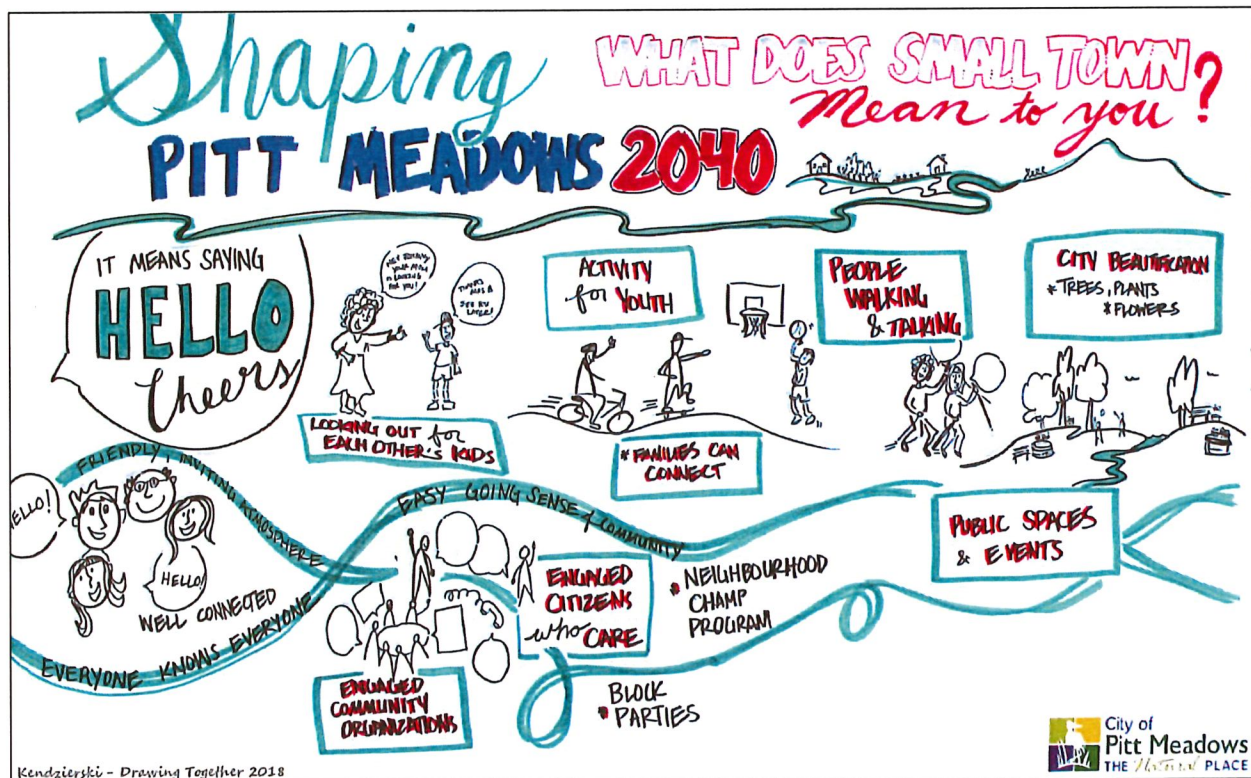 Shaping
PITT MEADOWS 2040
WHAT DOES SMALL TOWN
Mean to you?
IT MEANS SAYING
HELLO
Cheers
YOUR MOM
IS LOOKING
FOR YOU!
THANKS
MRS B
SEE YU
LATER!
LOOKING OUT for
EACH OTHER'S KIDS
ACTIVITY
for YOUTH
* FAMILIES CAN
CONNECT
PEOPLE
WALKING
& TALKING
CITY BEAUTIFICATION
* TREES, PLANTS
* FLOWERS
FRIENDLY, INVITING ATMOSPHERE
HELLO!
HELLO!
WELL CONNECTED
EVERYONE KNOWS EVERYONE
EASY GOING SENSE of COMMUNITY
ENGAGED
COMMUNITY
ORGANIZATIONS
ENGAGED
CITIZENS
who CARE
* NEIGHBOURHOOD
CHAMP
PROGRAM
BLOCK
* PARTIES
PUBLIC SPACES
& EVENTS
Kendzierski - Drawing Together 2018
City of
Pitt Meadows
THE Natural PLACE